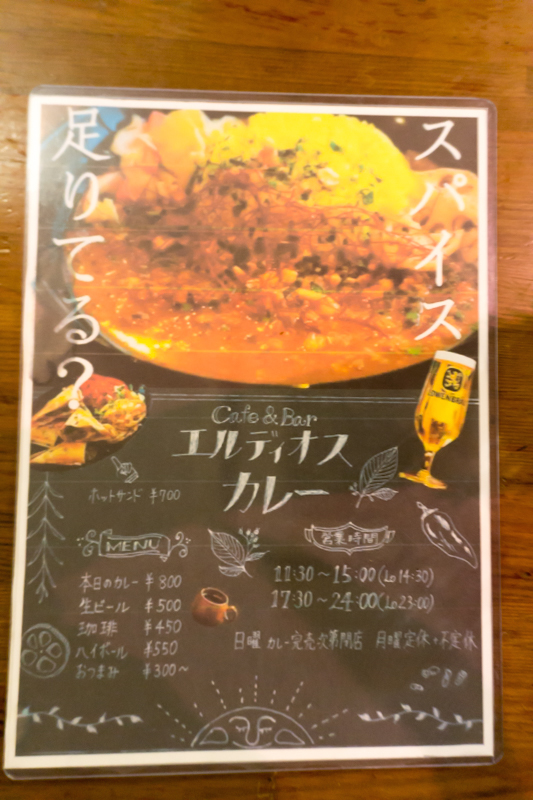 スパイス
足りてる？
LÖWENBRÄU
Cafe & Bar
エルディオス
カレー
ホットサンド ¥700
MENU
本日のカレー ¥800
生ビール ¥500
珈琲 ¥450
ハイボール ¥550
おつまみ ¥300~
営業時間
11:30～15:00(Lo14:30)
17:30～24:00(Lo23:00)
日曜 カレー完売次第閉店 月曜定休+不定休